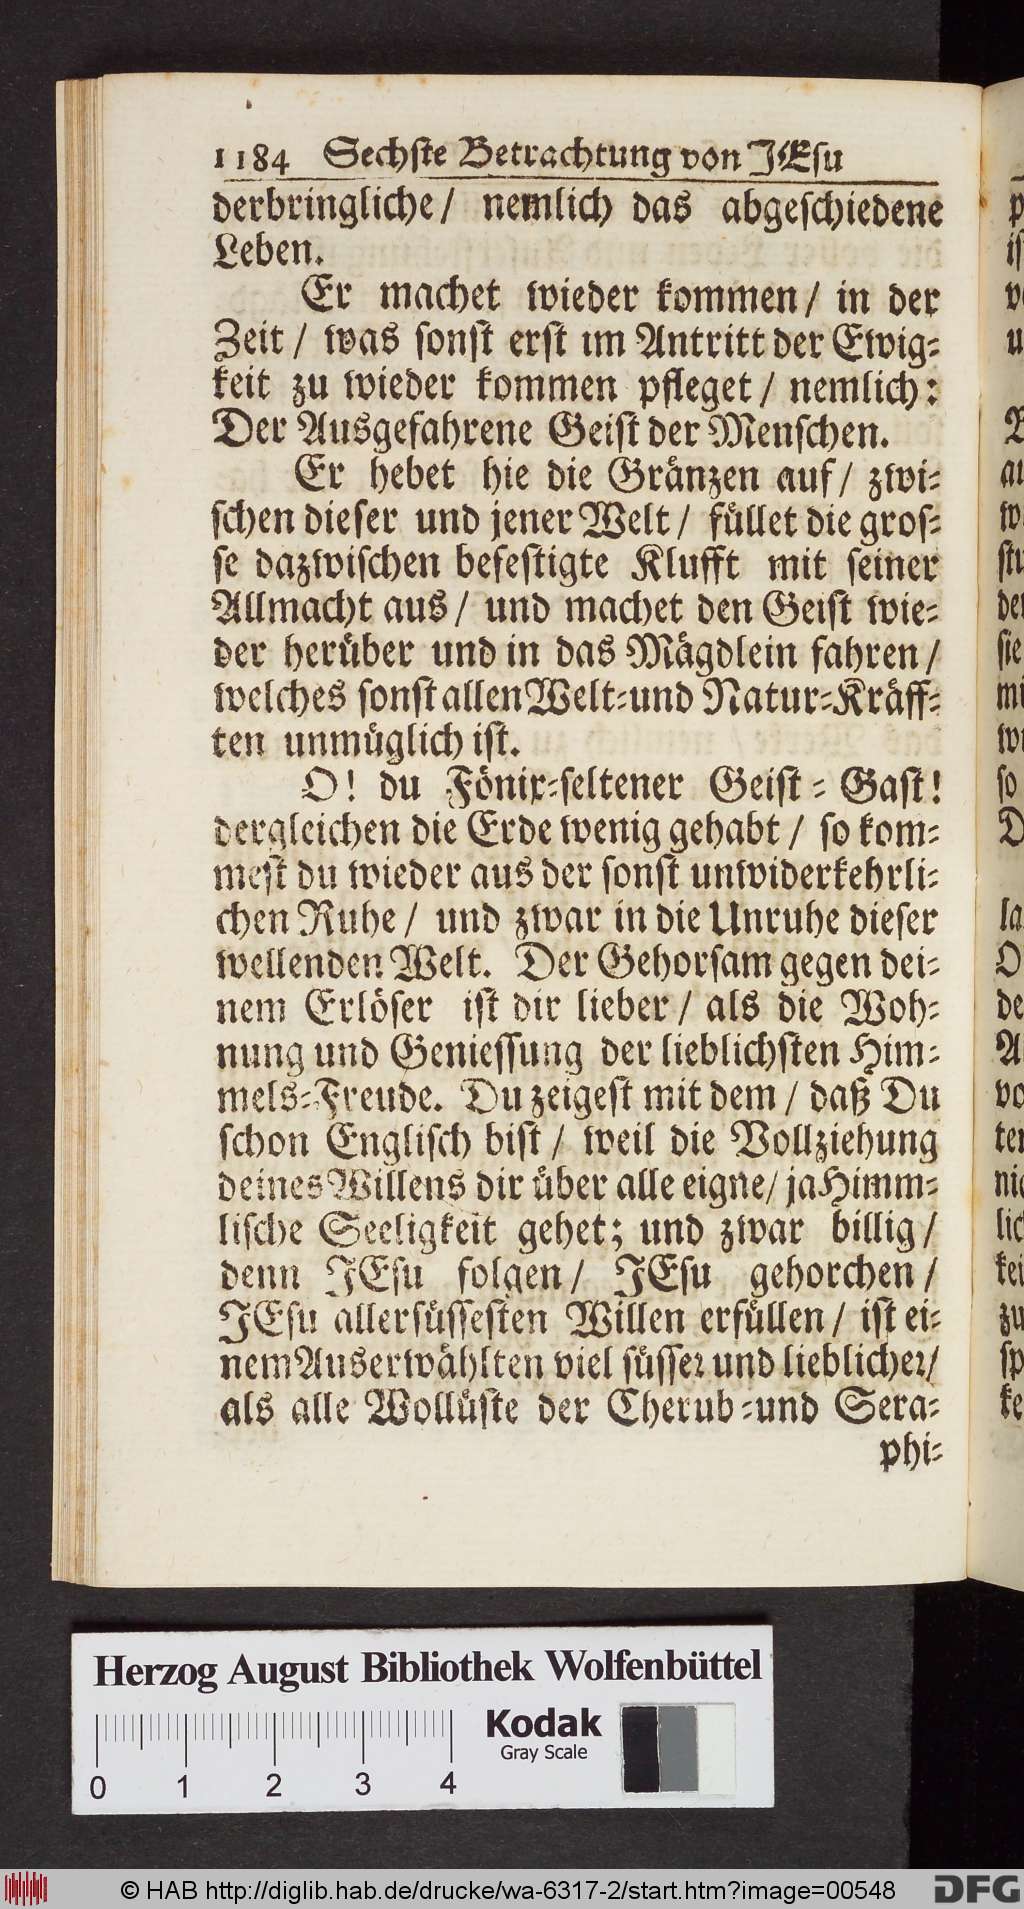 1184 Sechste Betrachtung von JEsu
derbringliche / nemlich das abgeschiedene
Leben.
Er machet wieder kommen / in der
Zeit / was sonst erst im Antritt der Ewig-
keit zu wieder kommen pfleget / nemlich:
Der Ausgefahrene Geist der Menschen.
Er hebet hie die Gränzen auf / zwi-
schen dieser und jener Welt / füllet die gros-
se dazwischen befestigte Klufft mit seiner
Allmacht aus / und machet den Geist wie-
der herüber und in das Mägdlein fahren /
welches sonst allen Welt-und Natur-Kräff-
ten unmüglich ist.
O! du Fönix-seltener Geist-Gast!
dergleichen die Erde wenig gehabt / so kom-
mest du wieder aus der sonst unwiderkehrli-
chen Ruhe / und zwar in die Unruhe dieser
wellenden Welt. Der Gehorsam gegen dei-
nem Erlöser ist dir lieber / als die Woh-
nung und Geniessung der lieblichsten Him-
mels-Freude. Du zeigest mit dem / daß Du
schon Englisch bist / weil die Vollziehung
deines Willens dir über alle eigne / ja Himm-
lische Seeligkeit gehet; und zwar billig /
denn JEsu folgen / JEsu gehorchen /
JEsu allersüssesten Willen erfüllen / ist ei-
nem Auserwählten viel süsser und lieblicher /
als alle Wollüste der Cherub-und Sera-
phi-
Herzog August Bibliothek Wolfenbüttel
Kodak
Gray Scale
0 1 2 3 4
© HAB http://diglib.hab.de/drucke/wa-6317-2/start.htm?image=00548
DFG